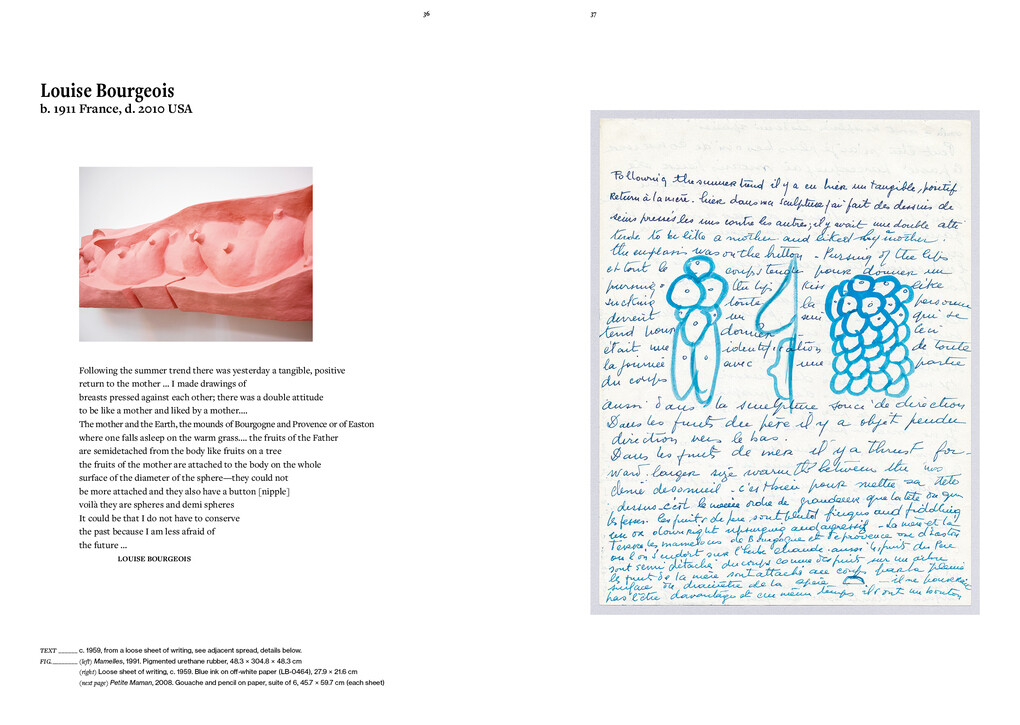 36
37
Louise Bourgeois
b. 1911 France, d. 2010 USA
Following the summer trend there was yesterday a tangible, positive
return to the mother ... I made drawings of
breasts pressed against each other; there was a double attitude
to be like a mother and liked by a mother....
The mother and the Earth, the mounds of Bourgogne and Provence or of Easton
where one falls asleep on the warm grass.... the fruits of the Father
are semidetached from the body like fruits on a tree
the fruits of the mother are attached to the body on the whole
surface of the diameter of the sphere—they could not
be more attached and they also have a button [nipple]
voilà they are spheres and demi spheres
It could be that I do not have to conserve
the past because I am less afraid of
the future ...
LOUISE BOURGEOIS
TEXT ______ c. 1959, from a loose sheet of writing, see adjacent spread, details below.
FIG. ________ (left) Mamelles, 1991. Pigmented urethane rubber, 48.3 × 304.8 × 48.3 cm
(right) Loose sheet of writing, c. 1959. Blue ink on off-white paper (LB-0464), 27.9 × 21.6 cm
(next page) Petite Maman, 2008. Gouache and pencil on paper, suite of 6, 45.7 × 59.7 cm (each sheet)
Following the summer trend il y a eu hier un tangible, positif
Return à la mère. hier dans ma sculpture j'ai fait des dessins de
seins pressés les uns contre les autres; il y avait une double atti
tude to be like a mother and liked by mother.
the emphasis was on the button - Pursing of the lips
et tout le corps tendu pour donner un
pursing the lips kiss like
sucking toute la personne
devient un sein qui se
tend pour donner ceci
était une identification de toute
la journée avec une partie
du corps
aussi dans la sculpture souci de direction
Dans les fruits du père il y a objet pendu
direction vers le bas.
Dans les fruits de mère il y a thrust for-
ward. larger size warmth between the
pour mettre sa tête
dessus. c'est le même ordre de grandeur que la tête ou que
les fesses. les fruits du père sont plutôt fingers and fiddling
ou downright upsurging and agressif - La mère et la
Terre les mamelons de Bourgogne et de provence ou d'Easton
ou l'on s'endort sur l'herbe chaude. aussi les fruits du Père
sont semi détachés du corps comme des fruits sur un arbre
le fruit de la mère sont attachés au corps par la pleine
surface ou diamètre de la - il ne pourrait
pas l'être davantage et en même temps il ont un bouton